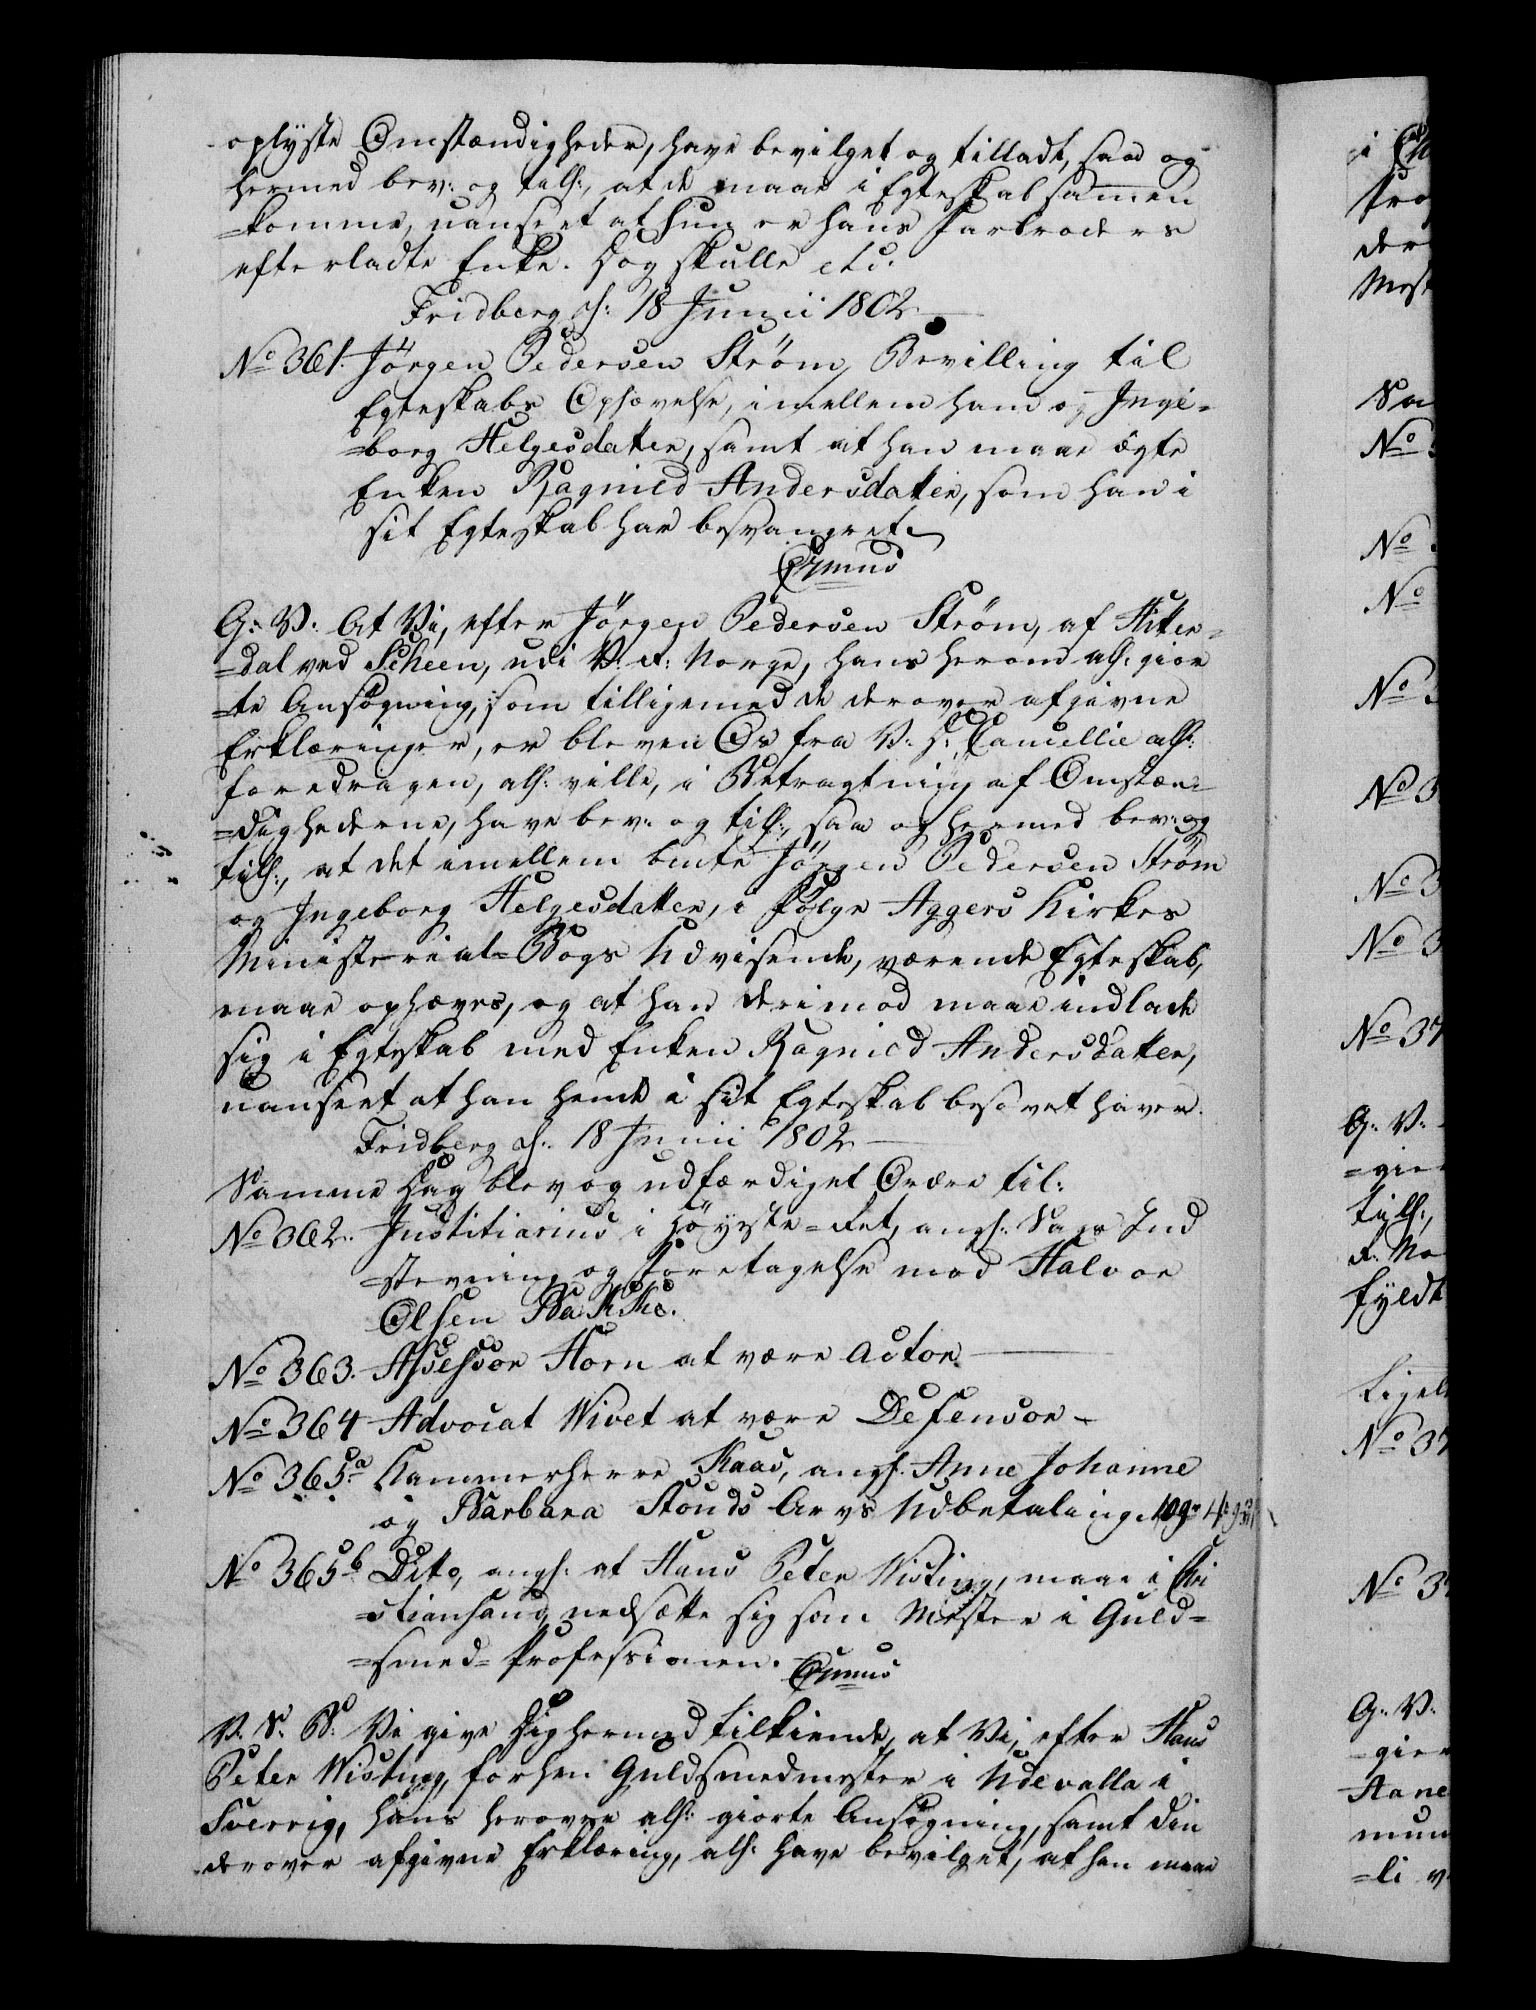 oplyste Omstændigheder, have bevilget og tilladt, saa og
hermed bev: og till:, at de maae i Egteskab sammen
=komme, uanseet at hun er hans Farbroders
efterladte Enke. Dog skulle etc.
Fridberg d: 18 Junii 1802
No 361. Jörgen Pedersen Ström, Bevilling til
Egteskabs Ophævelse, imellem ham og Inge=
=borg Helgesdatter, samt at han maae ægte
Enken Ragnild Andersdatter, som han i
sit Egteskab har besvangret.
Osmus
G: V: At Vi, efter Jörgen Pedersen Ström, af Hiter=
=dal ved Scheen, udi V: R: Norge, hans herom all: gior
=te Ansögning, som tilligemed de derover afgivne
Erklæringer, er bleven Os fra V: D: Cancellie all:
foredragen, all: ville, i Betragtning af Omstæn=
=dighederne, have bev: og till:, saa og hermed bev: og
till:, at det imellem bemte Jörgen Pedersen Ström
og Ingeborg Helgesdatter, i Fölge Aggers Kirkes
Ministerial=Bogs Udvisende, værende Egteskab,
maae ophæves, og at han derimod maae indlade
sig i Egteskab med Enken Ragnild Andersdatter,
uanseet at han hende i sit Egteskab besovet haver.
Fridberg d: 18 Junii 1802
Samme Dag blev og udfærdiget Ordre til:
No 362. Justitiarius i Höyste=Ret, angl: Sags Ind
=stevning og Foretagelse mod Halvor
Olsen Bakke.
No 363. Assessor Horn at være Actor
No 364 Advocat Wivet at være Defensor
No 365a Kammerherre Kaas, angl. Anne Johanne
og Barbara Stouds Arvs Udbetaling.
No 365b Dito, angl: at Hans Peter Wisting, maae i Chri
=stiansand nedsætte sig som Mester i Guld=
=smed=Professionen.
Osmus
V. S. B: Vi give Dig hermed tilkiende, at Vi, efter Hans
Peter Wisting, forhen Guldsmedmester i Udevalla i
Sverrig, hans herover all: giorte Ansögning, samt din
derover afgivne Erklæring, all: have bevilget, at han maae